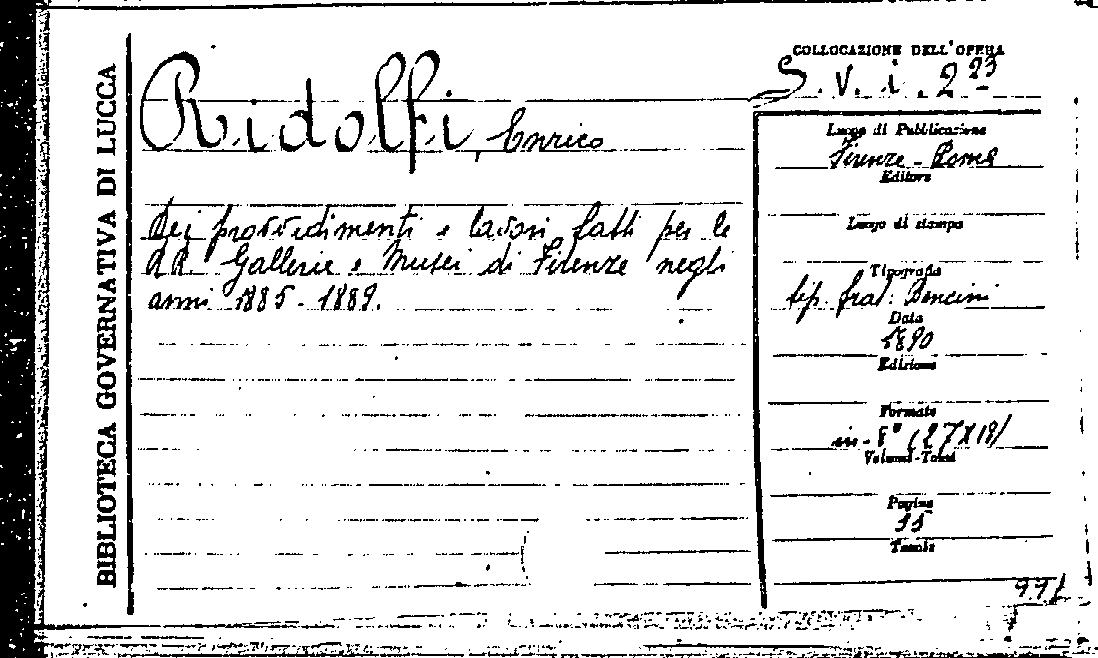 BIBLIOTECA GOVERNATIVA DI LUCCA
Ridolfi, Enrico
Dei provvedimenti e lavori fatti per le
RR. Gallerie e Musei di Firenze negli
anni 1885-1889.
COLLOCAZIONE DELL'OPERA
S. V. i. 2 23
Luogo di Pubblicazione
Firenze - Roma
Editore
Luogo di stampa
Tipografia
tip. frat. Bencini
Data
1890
Edizione
Formato
in-8° (27X19)
Volumi-Tomi
Pagine
Tavole